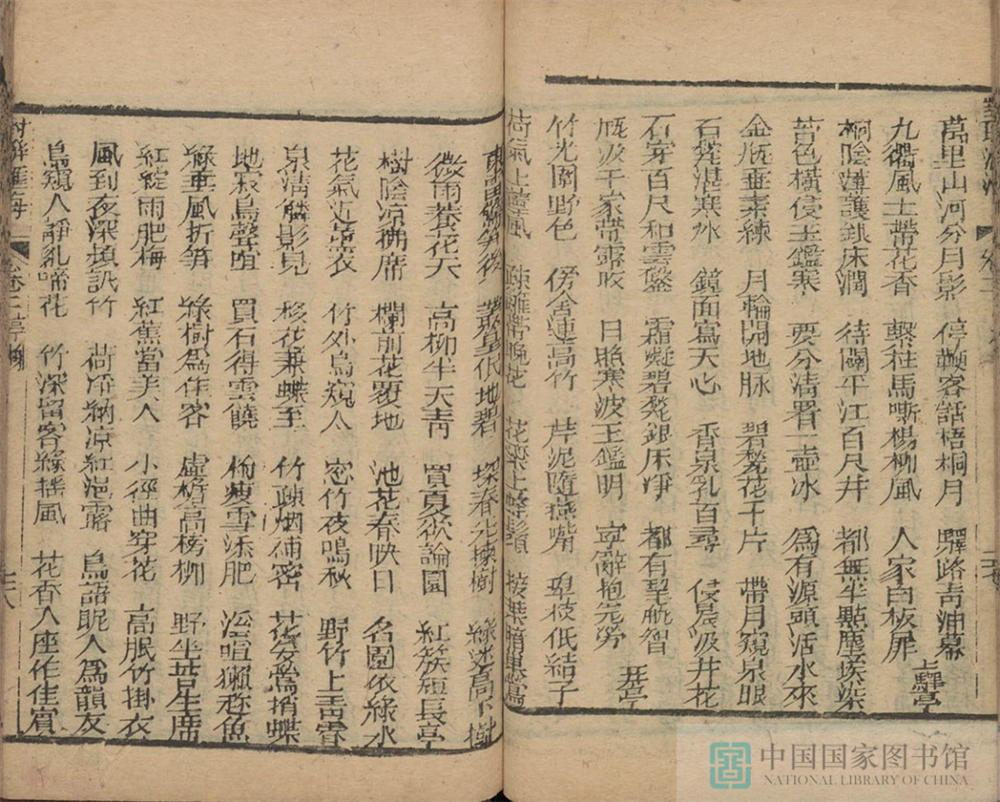 萬里山河分月影 停鞭客話梧桐月 驛路青油幕
九衢風土帶花香 繫柱馬嘶楊柳風 人家白板扉 上驛亭
桐陰薄護銀床潤 待闢平江百尺井 都無半點塵埃染
苔色橫侵玉鑑寒 要分清署一壺冰 為有源頭活水來
金瓶垂素練 月輪開地脉 碧甃花千片 帶月窺泉眼
石甃湛寒冰 鏡面寫天心 香泉乳百尋 侵晨汲井花
石穿百尺和雲鑿 霜凝碧甃銀床淨 都有挈瓶智
汲千家帶露收 日照寒波玉鑑明 寧辭抱瓮勞 井亭
竹光圍野色 傍舍連高竹 芹泥隨燕嘴 卑枝低結子
荷氣上薰風 疎籬帶晚花 花蘂上蜂鬚 接葉暗巢鳥
叢星低地碧 探春花揀樹
微雨養花天 高柳半天青 買夏欲論園 紅簇短長亭
樹陰涼拂席 欄前花覆地 池花春映日 名園依綠水
花氣近薰衣 竹外鳥窺人 窓竹夜鳴秋 野竹上青霄
泉清鱗影見 移花兼蝶至 竹疎烟補密 花妥鶯捎蝶
地寂鳥聲喧 買石得雲饒 梅瘦雪添肥 溪喧獺趂魚
綠垂風折筍 綠樹為佳客 虛檐高榜柳 野坐苔生席
紅綻雨肥梅 紅蕉當美人 小徑曲穿花 高眠竹掛衣
風到夜深頻訊竹 荷淨納涼紅浥露 鳥語昵人為韻友
鳥窺人靜亂啼花 竹深留客綠搖風 花香入座作佳賓
卷三亭榭